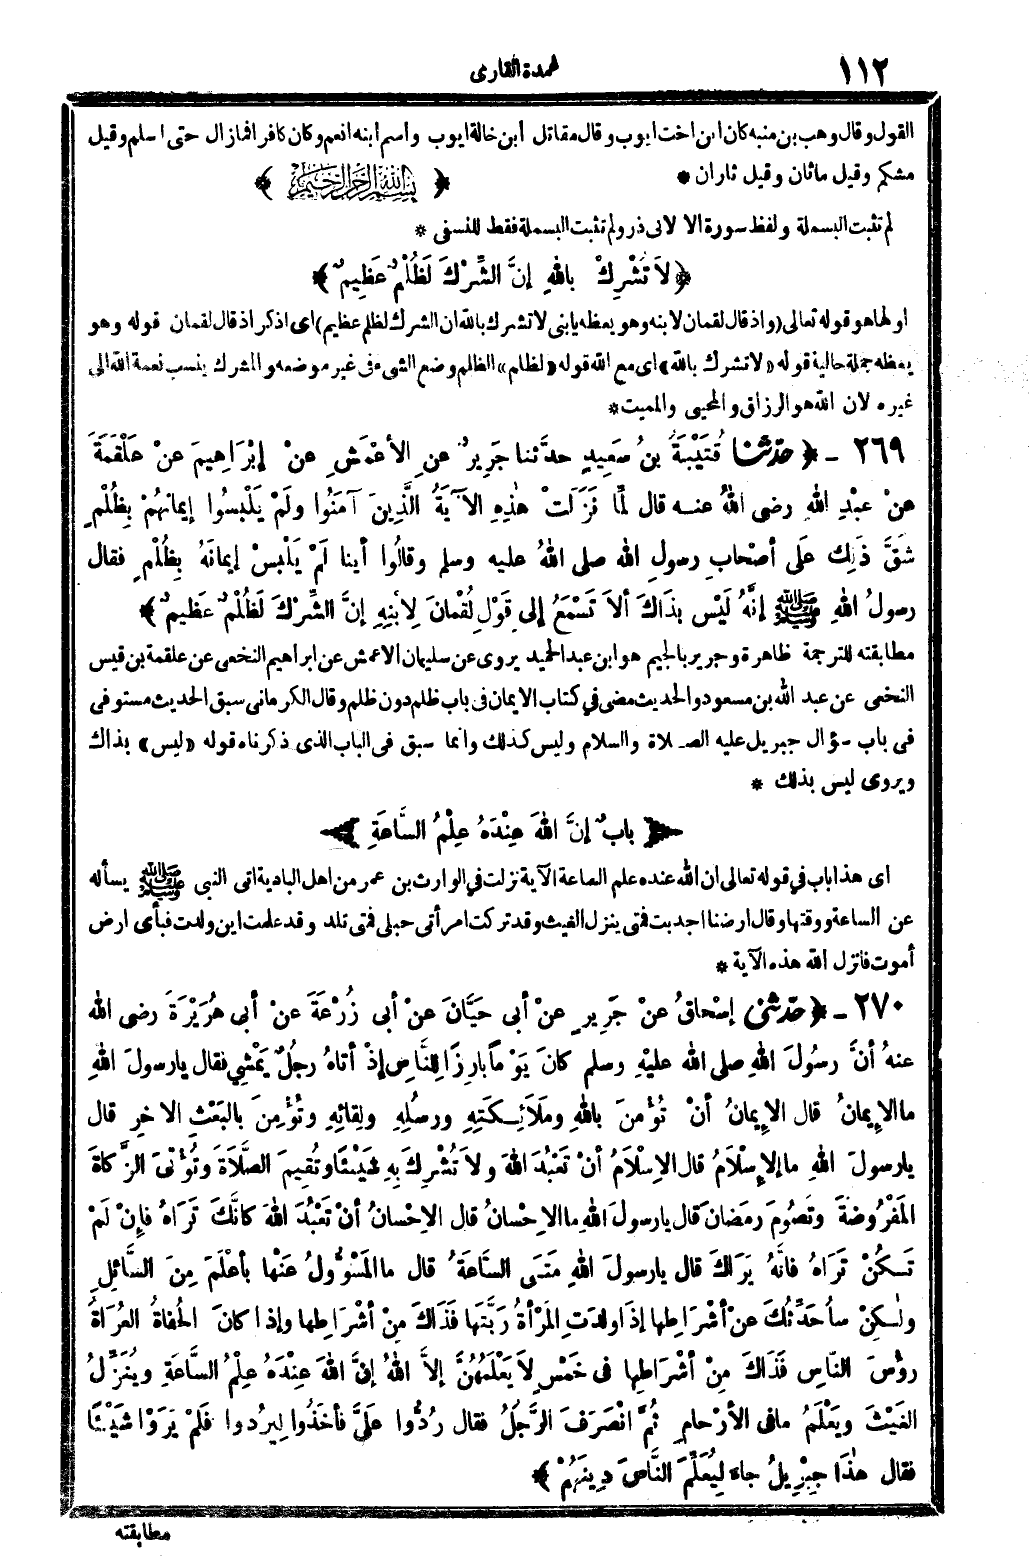 ١١٢ عمدة القارى
القول وقال وهب بن منبه كان ابن اخت ايوب وقال مقاتل ابن خالة ايوب واسم ابنه انعم وكان كافرا فما زال حتى اسلم وقيل
مشكم وقيل ماثان وقيل ثاران *
﴿ بسم الله الرحمن الرحيم ﴾
لم تثبت البسملة ولفظ سورة الا لابى ذر ولم تثبت البسملة فقط للنسفى *
﴿ لاَ تُشْرِكْ بِاللهِ إنَّ الشِّرْكَ لَظُلْمٌ عَظِيمٌ ﴾
اولها هو قوله تعالى (واذ قال لقمان لابنه وهو يعظه يابنى لا تشرك بالله ان الشرك لظلم عظيم) اى اذكر اذ قال لقمان قوله وهو
يعظه جملة حالية قوله «لا تشرك بالله» اى مع الله قوله «لظلم» الظلم وضع الشىء فى غير موضعه والمشرك ينسب نعمة الله الى
غيره لان الله هو الرزاق والمحيى والمميت *
٢٦٩ - ﴿ حدّثنا قُتَيْبَةُ بنُ سَعِيدٍ حدثنا جَرِيرٌ عنِ الأعْمَشِ عنْ إبْرَاهِيمَ عنْ عَلْقَمَةَ
عنْ عبْدِ اللهِ رضى اللهُ عنه قال لمَّا نَزَلَتْ هٰذِهِ الآيَةُ الَّذِينَ آمَنُوا ولَمْ يَلْبِسُوا إيمانَهُمْ بِظُلْمٍ
شَقَّ ذَلِكَ عَلَى أصْحابِ رسولِ الله صلى اللهُ عليه وسلم وقالُوا أينا لَمْ يَلْبِسْ إيمانَهُ بِظُلْمٍ فقال
رسولُ اللهِ ﷺ إنَّهُ لَيْسَ بِذَاكَ ألاَ تَسْمَعُ إلى قَوْلِ لُقْمانَ لِابْنِهِ إنَّ الشِّرْكَ لَظُلْمٌ عَظِيمٌ ﴾
مطابقته للترجمة ظاهرة وجرير بالجيم هو ابن عبد الحميد يروى عن سليمان الاعمش عن ابراهيم النخعى عن علقمة بن قيس
النخعى عن عبد الله بن مسعود والحديث مضى فى كتاب الايمان فى باب ظلم دون ظلم وقال الكرمانى سبق الحديث مستوفى
فى باب سؤال جبريل عليه الصلاة والسلام وليس كذلك وانما سبق فى الباب الذى ذكرناه قوله «ليس» بذاك
ويروى ليس بذلك *
﴿ بابٌ إنَّ اللهَ عِنْدَهُ عِلْمُ السَّاعَةِ ﴾
اى هذا باب فى قوله تعالى ان الله عنده علم الساعة الآية نزلت فى الوارث بن عمر من اهل البادية اتى النبى ﷺ يسأله
عن الساعة ووقتها وقال ارضنا اجدبت فمتى ينزل الغيث وقد تركت امرأتى حبلى فمتى تلد وقد علمت اين ولدت فبأى ارض
أموت فانزل الله هذه الآية *
٢٧٠ - ﴿ حدّثنى إسْحاقُ عنْ جَرِيرٍ عنْ أبى حَيَّانَ عنْ أبى زُرْعَةَ عنْ أبى هُرَيْرَةَ رضى الله
عنهُ أنَّ رسُولَ اللهِ صلى الله عليْهِ وسلم كانَ يَوْماً بارِزًا لِلنَّاسِ إذْ أتاهُ رجُلٌ يَمْشِى فقال يارسولَ اللهِ
ما الإيمانُ قال الإيمانُ أنْ تُؤْمنَ باللهِ ومَلاَئِكَتِهِ ورسُلِهِ ولِقائِهِ وتُؤْمِنَ بالبَعْثِ الآخرِ قال
يارسولَ اللهِ ما الإسْلاَمُ قال الإسْلاَمُ أنْ تَعْبُدَ اللهَ ولاَ تُشْرِكَ بِهِ شَيْئًا وتُقِيمَ الصَّلاَةَ وتُؤْتىَ الزَّكاةَ
المَفْرُوضَةَ وتَصُومَ رمَضانَ قال يارسولَ اللهِ ما الإحْسانُ قال الإحْسانُ أنْ تَعْبُدَ اللهَ كأنَّكَ تَرَاهُ فإنْ لَمْ
تَكُنْ تَرَاهُ فانَّهُ يَرَاكَ قال يارسولَ اللهِ مَتَى السَّاعَةُ قال ما المَسْؤُولُ عَنْها بأعْلَمَ مِنَ السَّائِلِ
ولٰكِنْ سأُحَدِّثُكَ عنْ أشْرَاطِها إذَا ولدَتِ المَرْأةُ رَبَّتَها فَذَاكَ مِنْ أشْرَاطِها وإذا كانَ الحُفاةُ العُرَاةُ
رؤُسَ النَّاسِ فَذَاكَ مِنْ أشْرَاطِها فى خَمْسٍ لاَ يَعْلَمُهُنَّ إلاَّ اللهُ إنَّ اللهَ عِنْدَهُ عِلْمُ السَّاعَةِ ويُنَزِّلُ
الغَيْثَ ويَعْلَمُ مافى الأرْحامِ ثُمَّ انْصَرَفَ الرَّجُلُ فقال رُدُّوا عَلَىَّ فأخَذُوا لِيرُدوا فَلَمْ يَرَوْا شَيْئًا
فقال هٰذَا جِبْرِيلُ جاءَ لِيُعَلِّمَ النَّاسَ دِينَهُمْ ﴾
مطابقته